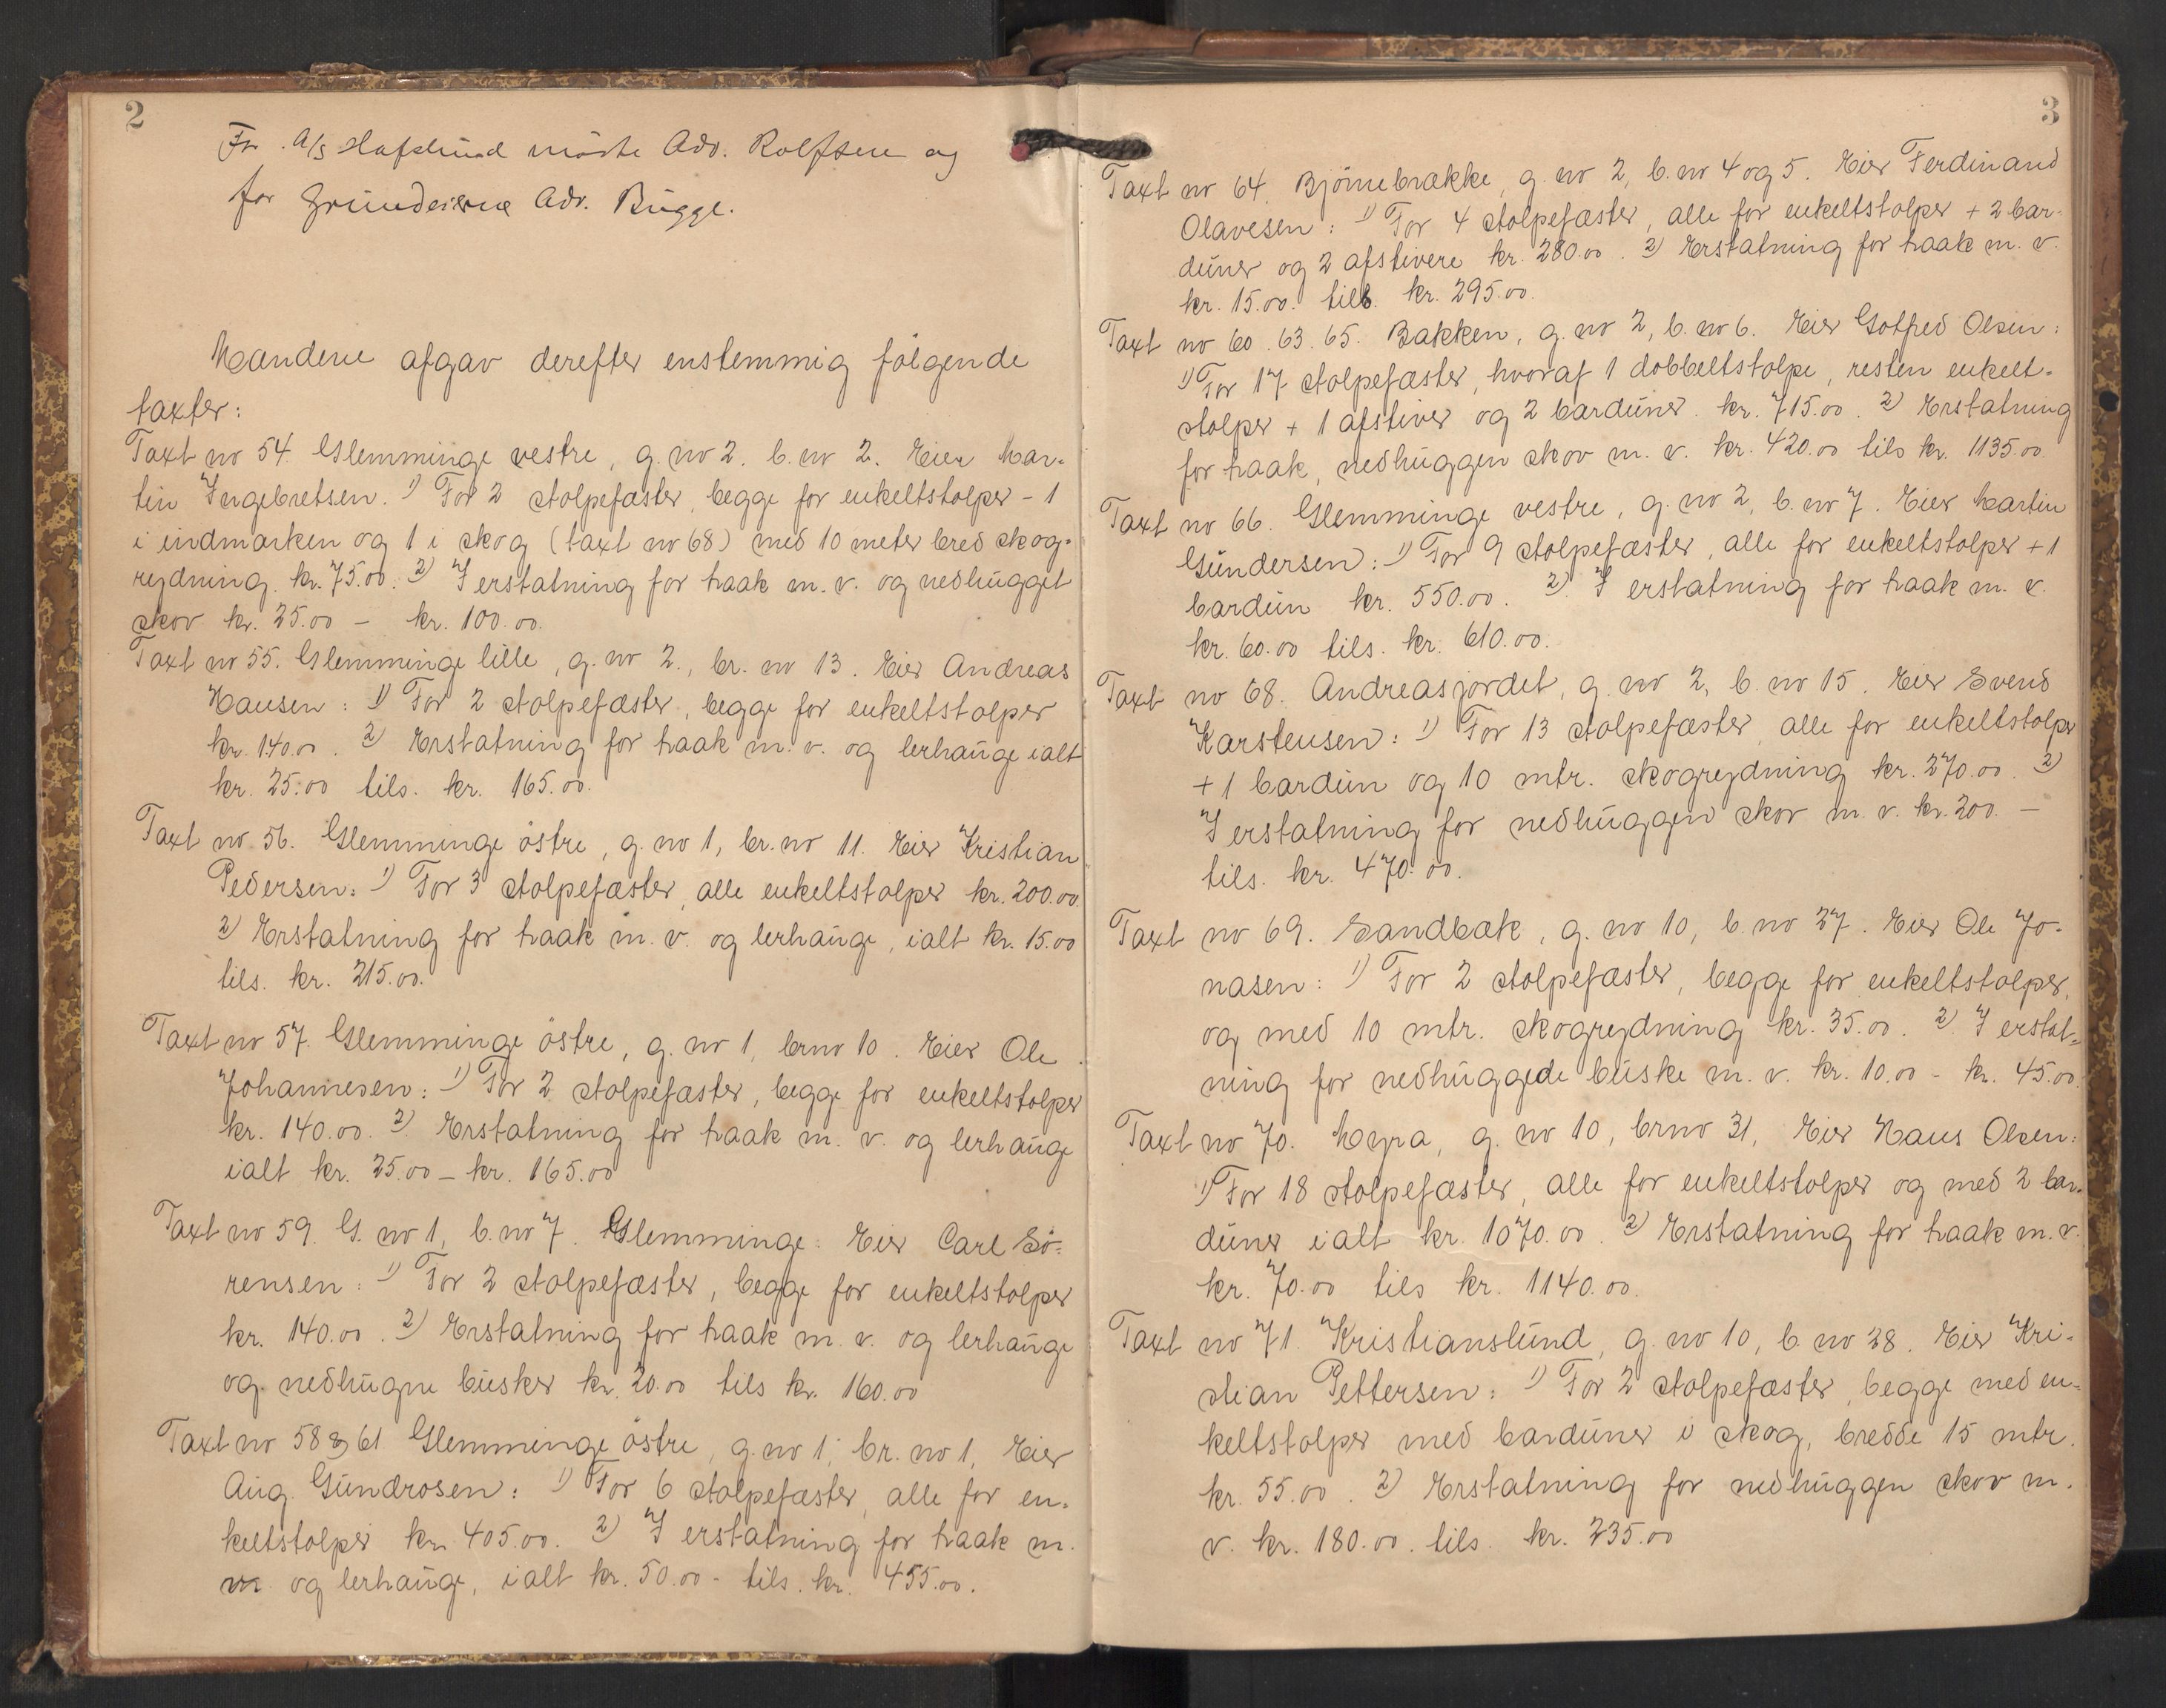 2
For A/s Hafslund mödte Adv. Rolfsen og
for Grundeierne Adv. Bugge.
Mændene afgav derefter enstemmig fölgende
taxter:
Taxt no 54 Glemminge vestre, g. no 2. b. no 2. Eier Mar-
tin Ingebretsen. 1) For 2 stolpefæster, begge for enkeltstolper - 1
i indmarken og 1 i skog (taxt no 68) med 10 meter bred skog-
rydning. kr. 75.00. 2) I erstatning for traak m. v. og nedhugget
skov kr. 25.00 - kr. 100.00.
Taxt no 55. Glemminge lille, g. no 2., br. no 13. Eier Andreas
Hansen: 1) For 2 stolpefæster, begge for enkeltstolper
kr. 140.00. 2) Erstatning for traak m. v. og lerhauge ialt
kr. 25.00 tils. kr. 165.00.
Taxt no 56. Glemminge östre, g. no 1, br. no 11. Eier Kristian
Pedersen: 1) For 3 stolpefæster, alle enkeltstolper kr. 200.00
2) Erstatning for traak m. v. og lerhauge, ialt kr. 15.00
tils. kr. 215.00.
Taxt no 57. Glemminge östre, g. no 1, brno 10. Eier Ole
Johannesen: 1) For 2 stolpefæster, begge for enkeltstolper
kr. 140.00. 2) Erstatning for traak m. v. og lerhauge
ialt kr. 25.00 - kr. 165.00
Taxt no 59. G. no 1, b. no 7. Glemminge. Eier Carl Sö-
rensen: 1) For 2 stolpefæster, begge for enkeltstolper
kr. 140.00. 2) Erstatning for traak m. v. og lerhauge
og nedhugne busker kr. 20.00 tils kr. 160.00
Taxt no 58 & 61 Glemminge östre, g. no 1, br. no 1, Eier
Aug. Gundrosen: 1) For 6 stolpefæster, alle for en-
keltstolper kr. 405.00. 2) I erstatning for traak m.
m. og lerhauge, ialt kr. 50.00 - tils. kr. 455.00.
3
Taxt no 64. Björnebrække, g. no 2, b. no 4 og 5. Eier Ferdinand
Olavesen: 1) For 4 stolpefæster, alle for enkeltstolper + 2 bar-
duner og 2 afstivere kr. 280.00. 2) Erstatning for traak m. v.
kr. 15.00. tils. kr. 295.00.
Taxt no 60. 63. 65. Bakken, g. no 2, b. no 6. Eier Gotfred Olsen:
1) For 17 stolpefæster, hvoraf 1 dobbeltstolpe, resten enkelt-
stolper + 1 afstiver og 2 barduner. kr. 715.00. 2) Erstatning
for traak, nedhuggen skov m. v. kr. 420.00 tils kr. 1135.00
Taxt no 66. Glemminge vestre, g. no 2, b. no 7. Eier Martin
Gundersen: 1) For 9 stolpefæster, alle for enkeltstolper + 1
bardun kr. 550.00. 2) I erstatning for traak m. v.
kr. 60.00 tils. kr. 610.00.
Taxt no 68. Andreasjordet, g. no 2, b. no 15. Eier Svend
Karstensen: 1) For 13 stolpefæster, alle for enkeltstolper
+ 1 bardun og 10 mtr. skogrydning kr. 270.00. 2)
I erstatning for nedhuggen skov m. v. kr. 200. -
tils. kr. 470.00.
Taxt no 69. Sandbak, g. no 10, b. no 27. Eier Ole Jo-
nasen: 1) For 2 stolpefæster, begge for enkeltstolper,
og med 10 mtr. skogrydning kr. 35.00. 2) I erstat-
ning for nedhuggede buske m. v. kr. 10.00 - kr. 45.00
Taxt no 70. Myra, g. no 10, brno 31, Eier Hans Olsen:
1) For 18 stolpefæster, alle for enkeltstolper og med 2 bar-
duner ialt kr. 1070.00. 2) Erstatning for traak m. v.
kr. 70.00 tils kr. 1140.00.
Taxt no 71. Kristianslund, g. no 10, b. no 28. Eier Kri-
stian Pettersen: 1) For 2 stolpefæster, begge med en-
keltstolper med barduner i skog, bredde 15 mtr.
kr. 55.00. 2) Erstatning for nedhuggen skov m.
v. kr. 180.00. tils. kr. 235.00